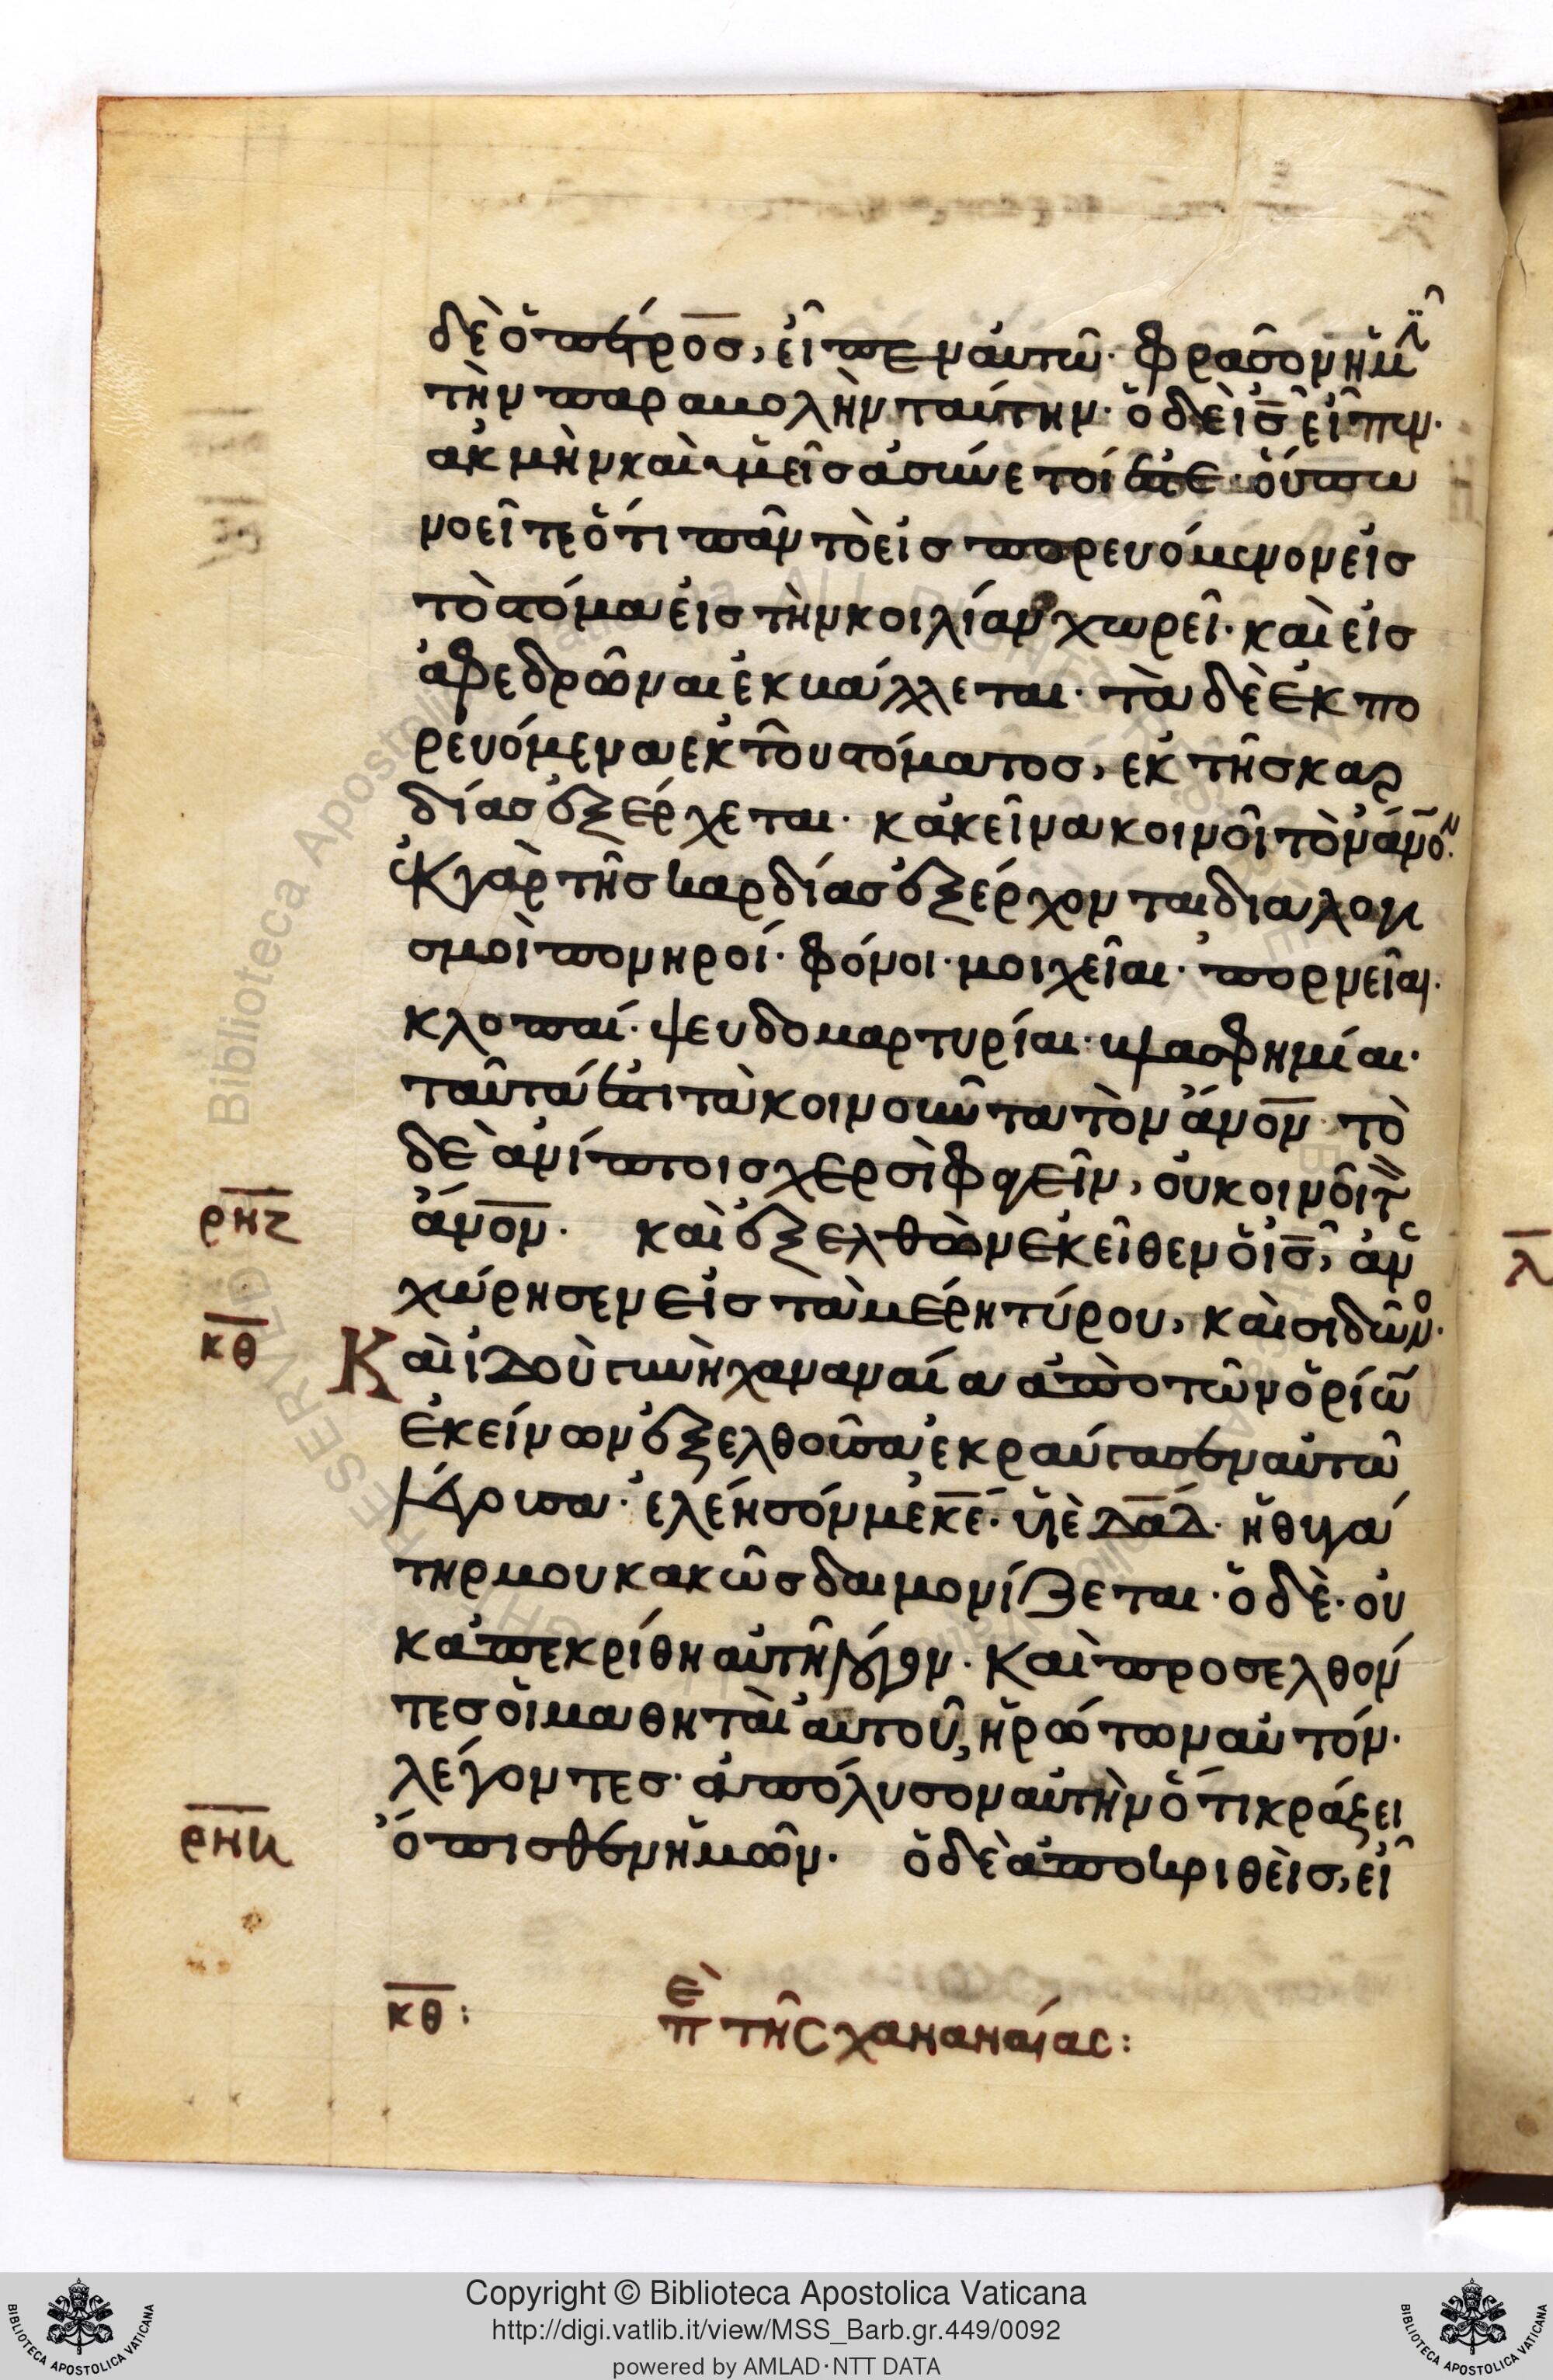 δὲ ὁ πέτρος, εἶπεν αὐτῶ· φράσον ἡμῖ
τὴν παραβολὴν ταύτην· ὁ δὲ ι̅ς̅ εἶπεν·
ἀκμὴν καὶ ὑμεῖς ἀσύνετοί ἐστε· οὔπω
νοεῖτε ὅτι πᾶν τὸ εἰσπορευόμενον εἰς
τὸ στόμα εἰς τὴν κοιλίαν χωρεῖ· καὶ εἰς
ἀφεδρῶνα ἐκβάλλεται· τὰ δὲ ἐκπο
ρευόμενα ἐκ τοῦ στόματος, ἐκ τῆς καρ
δίας ἐξέρχεται· κἀκεῖνα κοινοῖ τὸν ἄν̅ο̅ν·
ἐκ γὰρ τῆς καρδίας ἐξέρχονται διαλογι
σμοὶ πονηροί· φόνοι· μοιχεῖαι· πορνεῖαι·
κλοπαί· ψευδομαρτυρίαι· βλασφημίαι·
ταῦτά ἐστι τὰ κοινοῦντα τὸν ἄν̅ο̅ν̅· τὸ
δὲ ἀνίπτοις χερσὶ φαγεῖν, οὐ κοινοῖ τ̀
ἄν̅ο̅ν̅· καὶ ἐξελθὼν ἐκεῖθεν ὁ ι̅ς̅, ἀν
ρ̅η̅ζ̅
χώρησεν εἰς τὰ μέρη τύρου, καὶ σιδῶνο·
κ̅θ̅
Καὶ ἰδοὺ γυνὴ χαναναία ἀπὸ τῶν ὁρίω̅
ἐκείνων ἐξελθοῦσα ἐκραύγασεν αὐτῶ
λέγουσα· ἐλέησόν με κ̅ε̅· υἱὲ δ̅α̅δ̅· ἡ θυγά
τηρ μου κακῶς δαιμονίζεται· ὁ δὲ· οὐ
κ ἀπεκρίθη αὐτῆ λόγον· Καὶ προσελθόν
τες οἱ μαθηταὶ αὐτοῦ, ἠρώτων αὐτόν·
λέγοντες· ἀπόλυσον αὐτὴν ὅτι κράζει
ὄπισθεν ἡμῶν· ὁ δὲ ἀποκριθεὶς, εἶ
ρ̅η̅η̅
κ̅θ̅: πὲ τῆς χαναναίας:
λ
Copyright © Biblioteca Apostolica Vaticana
http://digi.vatlib.it/view/MSS_Barb.gr.449/0092
powered by AMLAD·NTT DATA
BIBLIOTECA APOSTOLICA VATICANA
BIBLIOTECA APOSTOLICA VATICANA